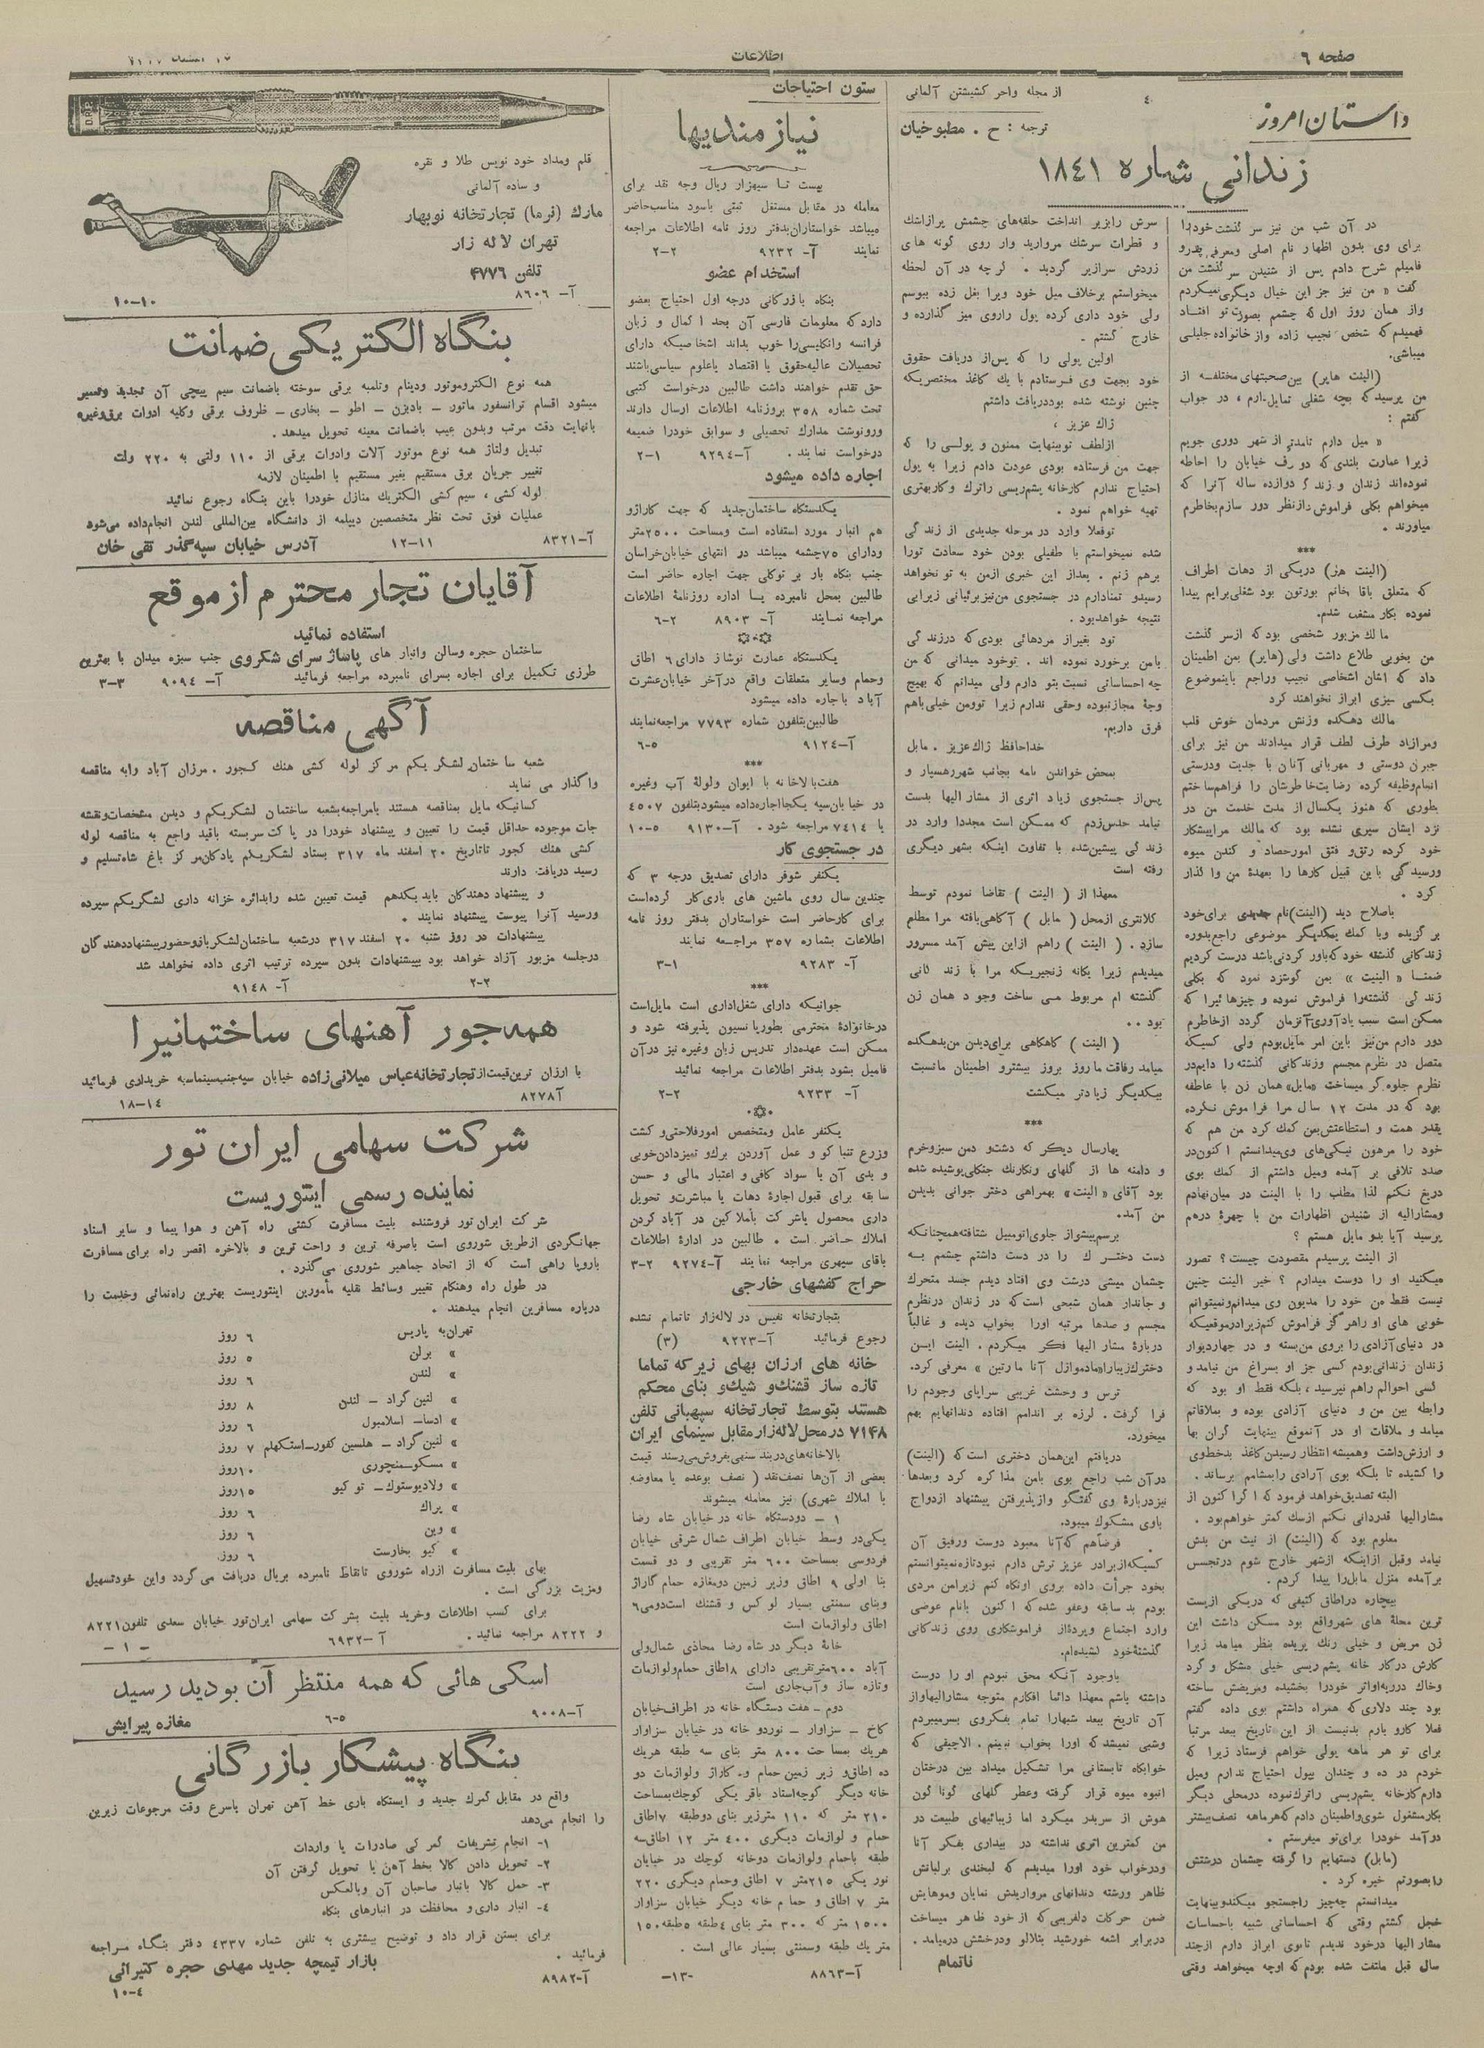 صفحه ٦
اطلاعات
داستان امروز
٤
از مجله واحر کشیشتن آلمانی
ترجمه : ح . مطبوخیان
زندانی شماره ١٨٤١
در آن شب من نیز سر گذشت خودرا
برای وی بدون اظهار نام اصلی ومعرفی پدرو
فامیلم شرح دادم پس از شنیدن سر گذشت من
گفت « من نیز جز این خیال دیگری نمیکردم
واز همان روز اول که چشمم بصورت تو افتاد
فهمیدم که شخص نجیب زاده واز خانواده جلیلی
میباشی.
(الینت هایر) بین صحبتهای مختلفه از
من پرسیدکه بچه شغلی تمایل دارم ، در جواب
گفتم :
« میل دارم تامدتی از شهر دوری جویم
زیرا عمارت بلندی که دورف خیابان را احاطه
نموده‌اند زندان و زندگی دوازده ساله آنرا که
میخواهم بکلی فراموش و ازنظر دور سازم بخاطرم
میاورند .
***
که متعلق باقا خانم بورتون بود شغلی برایم پیدا
نموده بکار مشغب شدم.
من بخوبی طلاع داشت ولی (هایر) بمن اطمینان
داد که ایشان اشخاصی نجیب وراجع باینموضوع
بکسی چیزی ابراز نخواهند کرد
مالک دهکده وزنش مردمان خوش قلب
ومرازیاد طرف لطف قرار میدادند من نیز برای
جبران دوستی و مهربانی آنان با جدیت ودرستی
انجام وظیفه کرده رضایت خاطرشان را فراهم ساختم
بطوری که هنوز یکسال از مدت خدمت من در
نزد ایشان سپری نشده بود که مالک مرا پیشکار
خود کرده رتق و فتق امورحصاد و کندن میوه
ورسیدگی باین قبیل کارها را بعهدهٔ من واگذار
کرد .
باصلاح دید (الینت) نام جدیدی برای خود
بر گزیده وبا کمک یکدیگر موضوعی راجع بدوره
زندگانی گذشته خود که باور کردنی باشد درست کردیم
ضمناً « الینیت » بمن گوشزد نمود که بکلی
زندگی گذشته را فراموش نموده و چیزهائیرا که
ممکن است سبب یادآوری آنزمان گردد ازخاطرم
دور دارم من نیز باین امر مایل بودم ولی کسیکه
متصل در نظرم مجسم وزندگانی گذشته را دایم در
نظرم جلوه گر میساخت «مابل» همان زن با عاطفه
بود که در مدت ١٢ سال مرا فراموش نکرده
بقدر همت و استطاعتش بمن کمک کرد من هم که
خود را مرهون نیکی‌های وی میدانستم اکنون در
صدد تلافی بر آمده ومیل داشتم از کمک بوی
دریغ نکنم لذا مطلب را با الینت در میان نهادم
ومشارالیه از شنیدن اظهارات من با چهرهٔ درهم
پرسید آیا بدو مایل هستم ؟
از الینت پرسیدم مقصودت چیست؟ تصور
میکنید او را دوست میدارم ؟ خیر الینت چنین
نیست فقط من خود را مدیون وی میدانم و نمیتوانم
خوبی های او را هر گز فراموش کنم زیرا در موقعیکه
در دنیای آزادی را بروی من بسته و در چهاردیوار
زندان زندانی بودم کسی جز او بسراغ من نیامد و
کسی احوالم راهم نپرسید ، بلکه فقط او بود که
رابطه بین من و دنیای آزادی بوده و بملاقاتم
میامد و ملاقات او در آنموقع بینهایت گران بها
و ارزش داشت وهمیشه انتظار رسیدن کاغذ بدخط وی
را کشیده تا بلکه بوی آزادی را بمشامم برساند .
البته تصدیق خواهد فرمود که اگر اکنون از
مشارالیها قدردانی نکنم ازسگ کمتر خواهم بود .
معلوم بود که (الینت) از نیت من بدش
نیامد وقبل ازاینکه ازشهر خارج شوم درتجسس
بر آمده منزل مابل را پیدا کردم .
بیچاره دراطاق کثیفی که دریکی ازپست
ترین محلهٔ های شهرواقع بود مسکن داشت این
زن مریض و خیلی رنگ پریده بنظر میامد زیرا
کارش درکار خانه پشم ریسی خیلی مشکل و گرد
وخاک در ریه اواثر خودرا بخشیده ومریضش ساخته
بود چند دلاری که همراه داشتم بوی داده گفتم
فعلا کارو بارم بدنیست از این تاریخ ببعد مرتباً
برای تو هر ماهه پولی خواهم فرستاد زیرا که
خودم در ده و چندان بپول احتیاج ندارم ومیل
دارم کارخانه پشم ریسی راترک نموده درمحلی دیگر
بکارمشغول شوی واطمینان دادم که هرماهه نصف بیشتر
درآمد خودرا برای تو میفرستم .
(مابل) دستهایم را گرفته چشمان درشتش
را بصورتم خیره کرد .
میدانستم چه چیز راجستجو میکند و بینهایت
خجل گشتم وقتی که احساساتی شبیه باحساسات
مشارالیها درخود ندیدم تا بوی ابراز دارم ازچند
سال قبل ملتفت شده بودم که اوچه میخواهد وقتی
سرش رابزیر انداخت حلقه‌های چشمش پرازاشک
و قطرات سرشک مروارید وار روی گونه های
زردش سرازیر گردید . گرچه در آن لحظه
میخواستم برخلاف میل خود ویرا بغل زده ببوسم
ولی خود داری کرده پول را روی میز گذارده و
خارج گشتم .
اولین پولی را که پس‌از دریافت حقوق
خود بجهت وی فرستادم با یک کاغذ مختصریکه
چنین نوشته شده بود دریافت داشتم
ژاک عزیز ،
ازلطف توبینهایت ممنون و پولسی را که
جهت من فرستاده بودی عودت دادم زیرا به پول
احتیاج ندارم کارخانه پشم‌ریسی راترک وکاربهتری
تهیه خواهم نمود .
توفعلا وارد در مرحله جدیدی از زندگی
شده نمیخواستم با طفیلی بودن خود سعادت تورا
برهم زنم . بعداز این خبری ازمن به تو نخواهد
رسیدو تمنادارم در جستجوی من نیز برنیائی زیرا بی
نتیجه خواهدبود .
تود بغیراز مردهائی بودی که درزندگی
بامن برخورد نموده اند . توخود میدانی که من
چه احساساتی نسبت بتو دارم ولی میدانم که بهیچ
وجه مجازنبوده وحقی ندارم زیرا توومن خیلی باهم
فرق داریم.
خداحافظ ژاک عزیز . مابل
بمحض خواندن نامه بجانب شهر رهسپار و
پس‌از جستجوی زیاد اثری از مشارالیها بدست
نیامد حدس‌زدم که ممکن است مجددا وارد در
زندگی پیشین‌شده با تفاوت اینکه بشهر دیگری
رفته است
معهذا از ( الینت ) تقاضا نمودم توسط
کلانتری ازمحل ( مابل ) آگاهی یافته مرا مطلع
سازد . ( الینت ) راهم ازاین پیش آمد مسرور
میدیدم زیرا یگانه زنجیریکه مرا با زندگانی
گذشته ام مربوط مسی ساخت وجود همان زن
بود ..
( الینت ) گاهگاهی برای‌دیدن من بدهکده
میامد رفاقت ما روز بروز بیشترو اطمینان ما نسبت
بیکدیگر زیادتر میگشت
***
بهارسال دیگر که دشت و دمن سبزوخرم
و دامنه ها از گلهای رنگارنگ جنگلی پوشیده شده
بود آقای « الینت » بهمراهی دختر جوانی بدیدن
من آمد.
برسم پیشواز جلوی اتومبیل شتافته همچنانکه
دست دخترک را در دست داشتم چشمم به
چشمان میشی درشت وی افتاد دیدم جسد متحرک
و جاندار همان شبحی است که در زندان درنظرم
مجسم و صدها مرتبه اورا بخواب دیده و غالباً
دربارهٔ مشارالیها فکر میکردم . الینت ایسن
دخترک زیبارا «مادموازل آنا مارتین » معرفی کرد.
ترس و وحشت غریبی سراپای وجودم را
فرا گرفت . لرزه بر اندامم افتاده دندانهایم بهم
میخورد.
دریافتم این‌همان دختری است که (الینت)
درآن شب راجع بوی بامن مذاکره کرد وبعدها
نیزدربارهٔ وی گفتگو و ازپذیرفتن پیشنهاد ازدواج
باوی مشکوک میبود.
فرضاً هم که آنا معبود دوست ورفیق آن
کسیکه از برادر عزیز ترش دارم نبود تازه نمیتوانستم
بخود جرأت داده بروی اونگاه کنم زیرا من مردی
بودم بد سابقه وعفو شده که اکنون بانام عوضی
وارد اجتماع وپرده‌از فراموشکاری روی زندگانی
گذشتهٔ خود کشیده‌ام.
باوجود آنکه محق نبودم او را دوست
داشته باشم معهذا دائماً افکارم متوجه مشارالیها واز
آن تاریخ ببعد شبهارا تمام بفکروی بسرمیبردم
وشبی نمیشد که اورا بخواب نبینم . الاچیقی که
خوابگاه تابستانی مرا تشکیل میداد بین درختان
انبوه میوه قرار گرفته وعطر گلهای گوناگون
هوش از سربدر میکرد اما زیبائیهای طبیعت در
من کمترین اثری نداشته در بیداری بفکر آنا
ودرخواب خود اورا میدیدم که لبخندی برلبانش
ظاهر ورشته دندانهای مرواریدش نمایان وموهایش
ضمن حرکات دلفریبی که از خود ظاهر میساخت
دربرابر اشعه خورشید بتلالو ودرخشش درمیامد .
ناتمام
ستون احتیاجات
نیازمندیها
بیست تا سیهزار ریال وجه نقد برای
معامله در مقابل مستغل ثبتی باسود مناسب حاضر
میباشد خواستاران بدفتر روز نامه اطلاعات مراجعه
نمایند آ- ٩٢٣٢ ٢-٢
استخدام عضو
بنگاه بازرگانی درجه اول احتیاج بعضو
دارد که معلومات فارسی آن بحد اکمال و زبان
فرانسه وانگلیسی را خوب بداند اشخاصیکه دارای
تحصیلات عالیه حقوق یا اقتصاد یا علوم سیاسی باشند
حق تقدم خواهند داشت طالبین درخواست کتبی
تحت شماره ٣٥٨ بروزنامه اطلاعات ارسال دارند
ورونوشت مدارک تحصیلی و سوابق خودرا ضمیمه
درخواست نمایند . آ-٩٢٩٤ ١-٢
اجاره داده میشود
یکدستگاه ساختمان جدید که جهت گاراژو
هم انبار مورد استفاده است ومساحت ٢٥٠٠متر
ودارای ٧٥چشمه میباشد در انتهای خیابان خراسان
جنب بنگاه بار بر توکلی جهت اجاره حاضر است
طالبین بمحل نامبرده یا اداره روزنامهٔ اطلاعات
مراجعه نمایند آ- ٨٩٠٣ ٢-٦
یکدستگاه عمارت نوشاز دارای ٦ اطاق
وحمام وسایر متعلقات واقع درآخر خیابان عشرت
آباد باجاره داده میشود
طالبین بتلفون شماره ٧٧٩٣ مراجعه نمایند
آ-٩١٢٤ ٥-٦
***
هفت بالاخانه با ایوان ولولهٔ آب وغیره
در خیابان سپه یکجا اجاره داده میشود بتلفون ٤٥٠٧
یا ٧٤١٤ مراجعه شود . آ-٩١٣٠ ٥-١٠
در جستجوی کار
یکنفر شوفر دارای تصدیق درجه ٣ که
چندین سال روی ماشین های باری کار کرده است
برای کار حاضر است خواستاران بدفتر روز نامه
اطلاعات بشماره ٣٥٧ مراجعه نمایند
آ- ٩٢٨٣ ١-٣
***
جوانیکه دارای شغل اداری است مایل است
درخانوادهٔ محترمی بطور پانسیون پذیرفته شود و
ممکن است عهده‌دار تدریس زبان وغیره نیز در آن
فامیل بشود بدفتر اطلاعات مراجعه نمائید
آ- ٩٢٣٣ ٢-٢
یکنفر عامل ومتخصص امورفلاحتی و کشت
وزرع تنباکو و عمل آوردن برگ و تمیزدادن خوبی
و بدی آن با سواد کافی و اعتبار مالی و حسن
سابقه برای قبول اجارهٔ دهات یا مباشرت و تحویل
داری محصول یا شرکت با ملاکین در آباد کردن
املاک حاضر است . طالبین در ادارهٔ اطلاعات
باقای سپهری مراجعه نمایند آ-٩٢٧٤ ٢-٣
حراج کفشهای خارجی
بتجارتخانه نفیس در لاله‌زار تاتمام نشده
رجوع فرمائید آ-٩٢٢٣ (٣)
خانه های ارزان بهای زیر که تماما
تازه ساز قشنگ و شیک و بنای محکم
هستند بتوسط تجارتخانه سپهبانی تلفن
٧١٤٨ در محل لاله‌زار مقابل سینمای ایران
بالاخانه‌های دربند سنهی بفروش می‌رسند قیمت
بعضی از آن‌ها نصف نقد ( نصف بوعده یا معاوضه
با املاک شهری) نیز معامله میشوند
١ - دودستگاه خانه در خیابان شاه رضا
یکی در وسط خیابان اطراف شمال شرقی خیابان
فردوسی بمساحت ٦٠٠ متر تقریبی و دو قسمت
بنا اولی ٩ اطاق وزیر زمین دومغازه حمام گاراژ
وبنای سمنتی بسیار لوکس و قشنگ است دومی ٦
اطاق ولوازمات است
خانهٔ دیگر در شاه رضا محاذی شمال ولی
آباد ٦٠٠متر تقریبی دارای ٨ اطاق حمام ولوازمات
وتازه ساز وآب جاری است
دوم - هفت دستگاه خانه در اطراف خیابان
کاخ - سزاوار - نوردو خانه در خیابان سزاوار
هریک بمساحت ٨٠٠ متر بنای سه طبقه هریک
ده اطاق و زیر زمین حمام و گاراژ ولوازمات دو
خانه دیگر کوچه استاد باقر یکی کوچک بمساحت
٢١٠ متر که ١١٠ مترزیر بنای دو طبقه ٧ اطاق
حمام و لوازمات دیگری ٤٠٠ متر ١٢ اطاق سه
طبقه باحمام ولوازمات دوخانه کوچک در خیابان
نور یکی ٢١٥متر ٧ اطاق وحمام دیگری ٢٢٠
متر ٧ اطاق و حمام خانه دیگر خیابان سزاوار
١٥٠٠ متر که ٣٠٠ متر بنای ٤طبقه ٥طبقه ١٥٠
متر یک طبقه وسمنتی بسیار عالی است .
آ-٨٨٦٣ -١٣-
قلم ومداد خود نویس طلا و نقره
و ساده آلمانی
مارک (نرما) تجارتخانه نوبهار
تهران لاله زار
تلفن ۴۷۷۶
آ- ٨٦٠٦ ١٠-١٠
بنگاه الکتریکی ضمانت
همه نوع الکتروموتور ودینام وتلمبه برقی سوخته باضمانت سیم پیچی آن تجدید وتعمیر
میشود اقسام ترانسفور ماتور - بادبزن - اطو - بخاری - ظروف برقی وکلیه ادوات برق وغیره
بانهایت دقت مرتب وبدون عیب باضمانت معینه تحویل میدهد.
تبدیل ولتاژ همه نوع موتور آلات وادوات برقی از ١١٠ ولتی به ٢٢٠ ولت
تغییر جریان برق مستقیم بغیر مستقیم با اطمینان لازمه
لوله کشی ، سیم کشی الکتریک منازل خودرا باین بنگاه رجوع نمائید
عملیات فوق تحت نظر متخصصین دیپلمه از دانشگاه بین‌المللی لندن انجام داده می‌شود
آ-٨٣٢١ ١١-١٢ آدرس خیابان سپه گذر تقی خان
آقایان تجار محترم ازموقع
استفاده نمائید
ساختمان حجره وسالن وانبار های پاساژ سرای شکروی جنب سبزه میدان با بهترین
طرزی تکمیل برای اجاره بسرای نامبرده مراجعه فرمائید آ- ٩٠٩٤ ٣-٣
آگهی مناقصه
شعبه ساختمان لشگر یکم مرکز لوله کشی هنگ کجور . مرزان آباد رابه مناقصه
واگذار می نماید
کسانیکه مایل بمناقصه هستند بامراجعه بشعبه ساختمان لشگریکم و دیدن مشخصات ونقشه
جات موجوده حداقل قیمت را تعیین و پیشنهاد خودرا در پاکت سربسته باقید راجع به مناقصه لوله
کشی هنگ کجور تاتاریخ ٢٠ اسفند ماه ٣١٧ بستاد لشگریکم پادگان مرکز باغ شاه تسلیم و
رسید دریافت دارند
و پیشنهاد دهندگان باید یکدهم قیمت تعیین شده رابدائره خزانه داری لشگریکم سپرده
ورسید آنرا پیوست پیشنهاد نمایند .
پیشنهادات در روز شنبه ٢٠ اسفند ٣١٧ درشعبه ساختمان لشگر باز وحضور پیشنهاددهندگان
درجلسه مزبور آزاد خواهد بود بپیشنهادات بدون سپرده ترتیب اثری داده نخواهد شد
٢-٢ آ- ٩١٤٨
همه جور آهنهای ساختمانیرا
با ارزان ترین قیمت از تجارتخانه عباس میلانی زاده خیابان سپه جنب سینما سپه خریداری فرمائید
آ٨٢٧٨ ١٤-١٨
شرکت سهامی ایران تور
نماینده رسمی اینتوریست
شرکت ایران تور فروشنده بلیت مسافرت کشتی راه آهن و هوا پیما و سایر اسناد
جهانگردی ازطریق شوروی است باصرفه ترین و راحت ترین و بالاخره اقصر راه برای مسافرت
باروپا راهی است که از اتحاد جماهیر شوروی می‌گذرد .
در طول راه وهنگام تغییر وسائط نقلیه مأمورین اینتوریست بهترین راهنمائی وخدمت را
درباره مسافرین انجام میدهند .
تهران به پاریس ٦ روز
» برلن ٥ روز
» لندن ٦ روز
» لنین گراد - لندن ٨ روز
» ادسا- اسلامبول ٦ روز
» لنین گراد - هلسین کفور-استکهلم ٧ روز
» مسکو-منچوری ١٠روز
» ولادیوستوک- توکیو ١٥روز
» پراگ ٦ روز
» وین ٦ روز
» کیو بخارست ٦ روز
بهای بلیت مسافرت ازراه شوروی تانقاط نامبرده بریال دریافت می گردد واین خودتسهیل
ومزیت بزرگی است .
برای کسب اطلاعات وخرید بلیت بشرکت سهامی ایران‌تور خیابان سعدی تلفون ٨٢٢١
و ٨٢٢٢ مراجعه نمائید . آ-٦٩٣٢ -١-
اسکی هائی که همه منتظر آن بودید رسید
آ-٩٠٠٨ ٥-٦ مغازه پیرایش
بنگاه پیشکار بازرگانی
واقع در مقابل گمرک جدید و ایستگاه باری خط آهن تهران باسرع وقت مرجوعات زیرین
را انجام می‌دهد
١- انجام تشریفات گمرکی صادرات یا واردات
٢- تحویل دادن کالا بخط آهن یا تحویل گرفتن آن
٣- حمل کالا بانبار صاحبان آن وبالعکس
٤- انبار داری و محافظت در انبارهای بنگاه
برای بستن قرار داد و توضیح بیشتری به تلفن شماره ٤٣٣٧ دفتر بنگاه مراجعه
فرمائید . بازار تیمچه جدید مهدی حجره کتیرائی
آ-٨٩٨٢ ٤-١٠